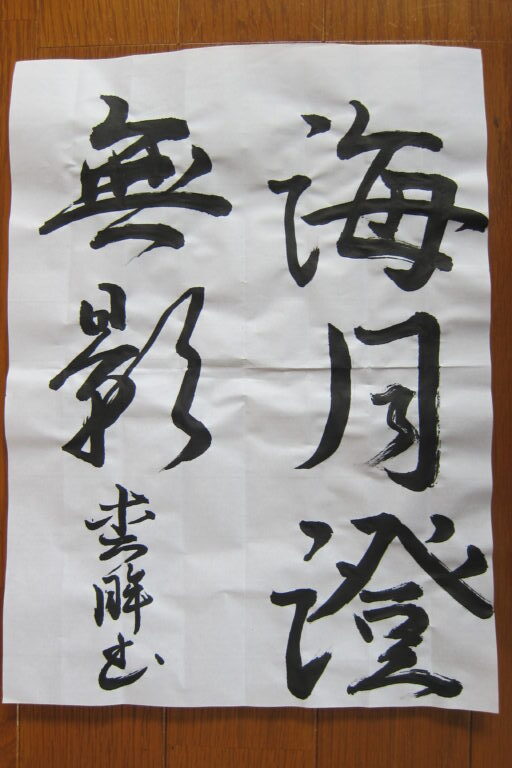 海月澄
無影
書